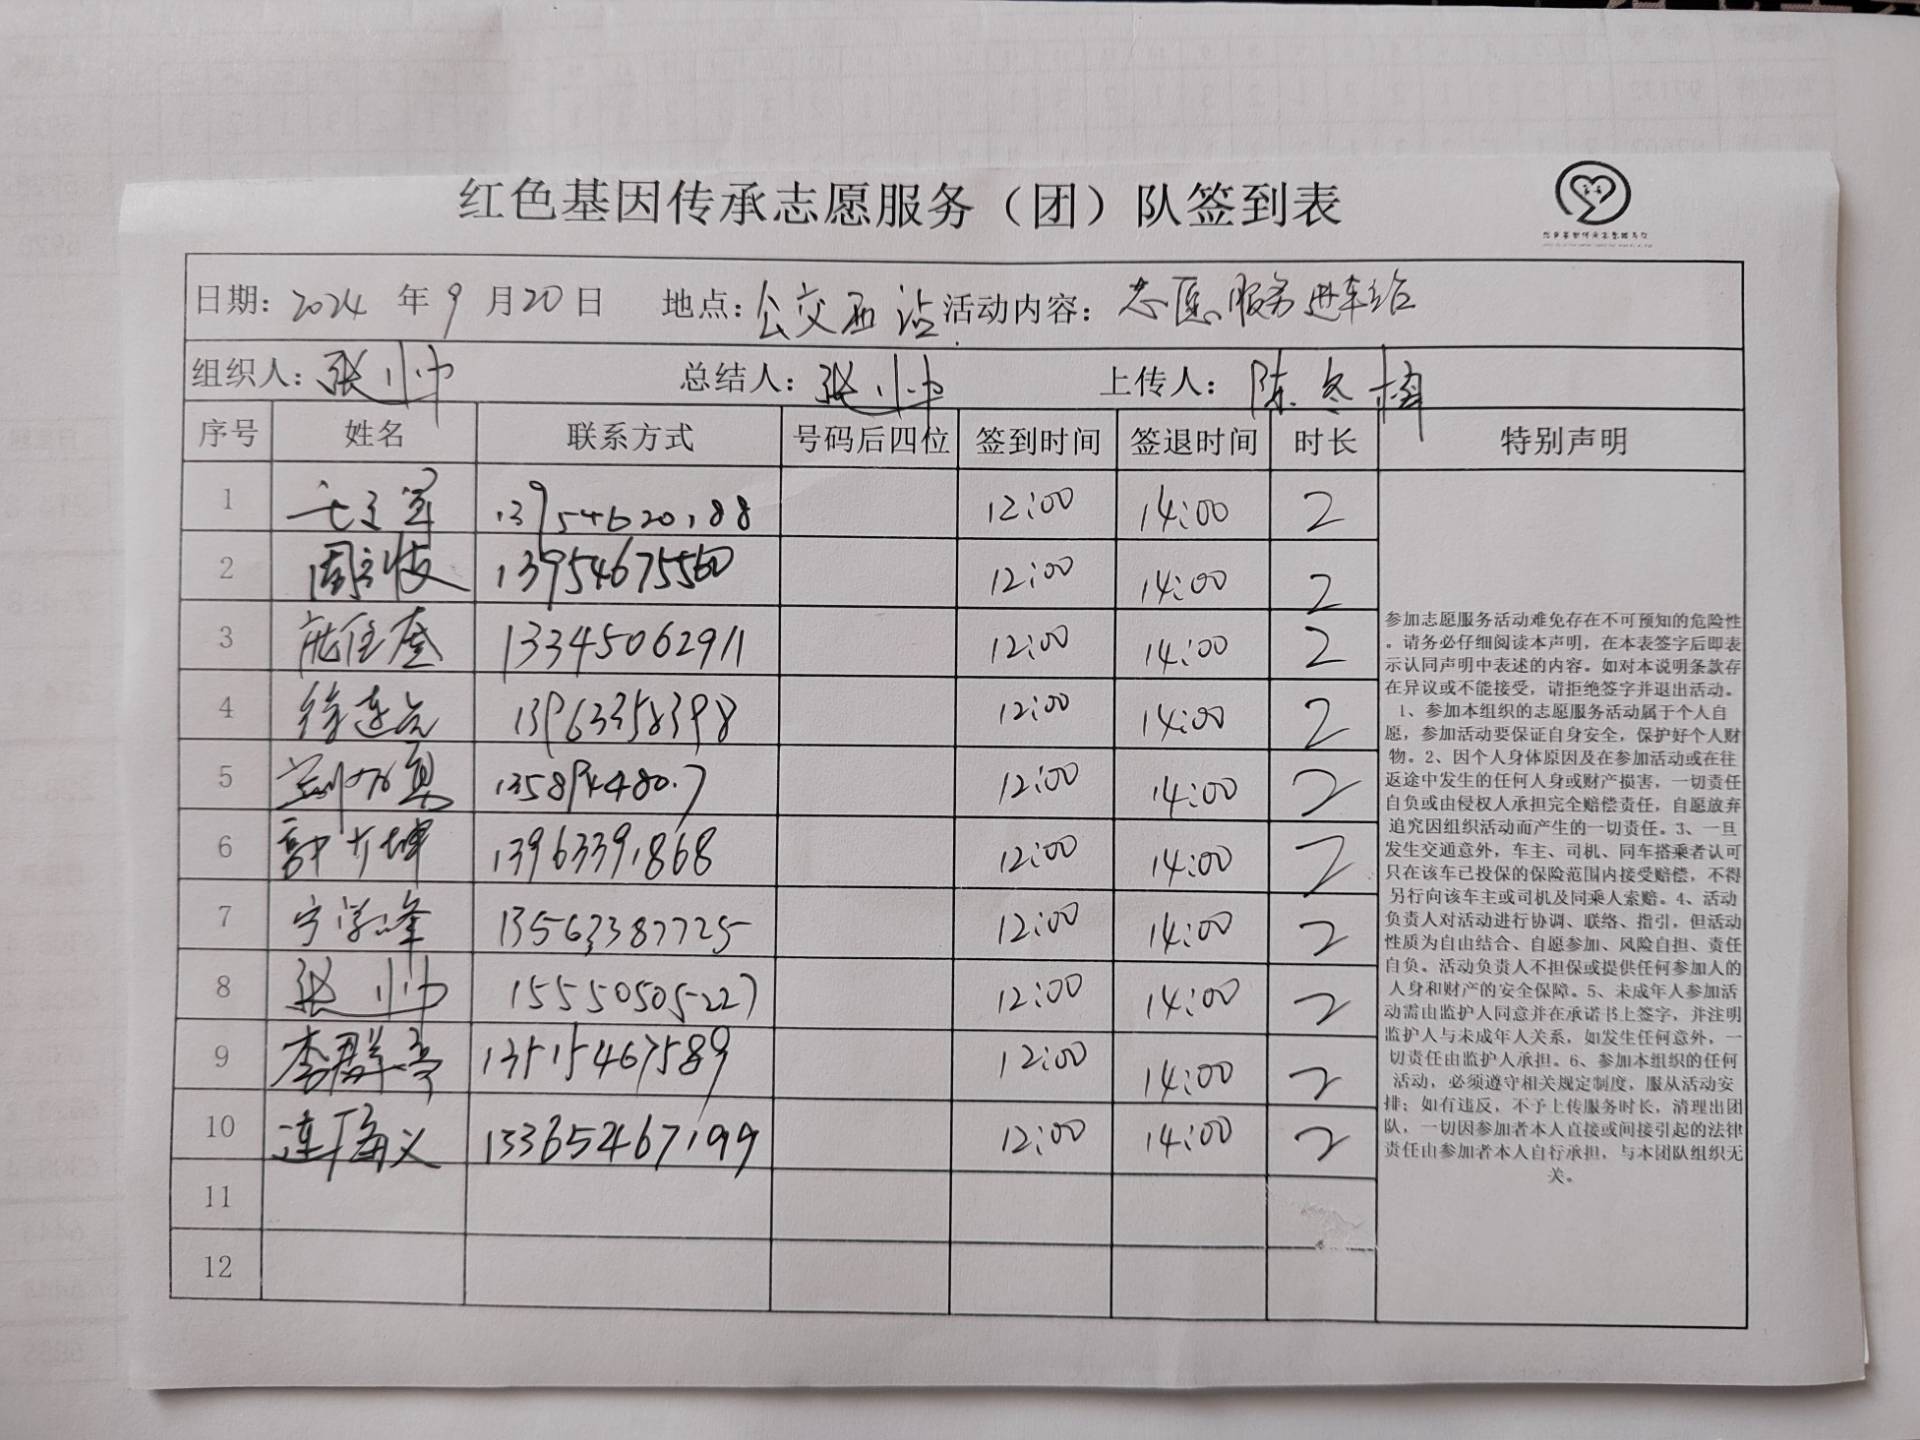 红色基因传承志愿服务（团）队签到表
日期：2024 年 9 月 20 日 地点：公交西站 活动内容：志愿服务进车站
组织人：张小帅 总结人：张小帅 上传人：陈冬梅
序号 姓名 联系方式 号码后四位 签到时间 签退时间 时长 特别声明
1 13954620188 12:00 14:00 2
2 13954675560 12:00 14:00 2
3 13345062911 12:00 14:00 2
4 徐连亮 13963358398 12:00 14:00 2
5 12:00 14:00 2
6 13963391868 12:00 14:00 2
7 宁学峰 13563387725 12:00 14:00 2
8 张小帅 15550505227 12:00 14:00 2
9 李群亭 13515467589 12:00 14:00 2
10 连海义 13365467199 12:00 14:00 2
11
12
参加志愿服务活动难免存在不可预知的危险性
。请务必仔细阅读本声明，在本表签字后即表
示认同声明中表述的内容。如对本说明条款存
在异议或不能接受，请拒绝签字并退出活动。
1、参加本组织的志愿服务活动属于个人自
愿，参加活动要保证自身安全，保护好个人财
物。2、因个人身体原因及在参加活动或在往
返途中发生的任何人身或财产损害，一切责任
自负或由侵权人承担完全赔偿责任，自愿放弃
追究因组织活动而产生的一切责任。3、一旦
发生交通意外，车主、司机、同车搭乘者认可
只在该车已投保的保险范围内接受赔偿，不得
另行向该车主或司机及同乘人索赔。4、活动
负责人对活动进行协调、联络、指引，但活动
性质为自由结合、自愿参加、风险自担、责任
自负。活动负责人不担保或提供任何参加人的
人身和财产的安全保障。5、未成年人参加活
动需由监护人同意并在承诺书上签字，并注明
监护人与未成年人关系，如发生任何意外，一
切责任由监护人承担。6、参加本组织的任何
活动，必须遵守相关规定制度，服从活动安
排；如有违反，不予上传服务时长，清理出团
队，一切因参加者本人直接或间接引起的法律
责任由参加者本人自行承担，与本团队组织无
关。